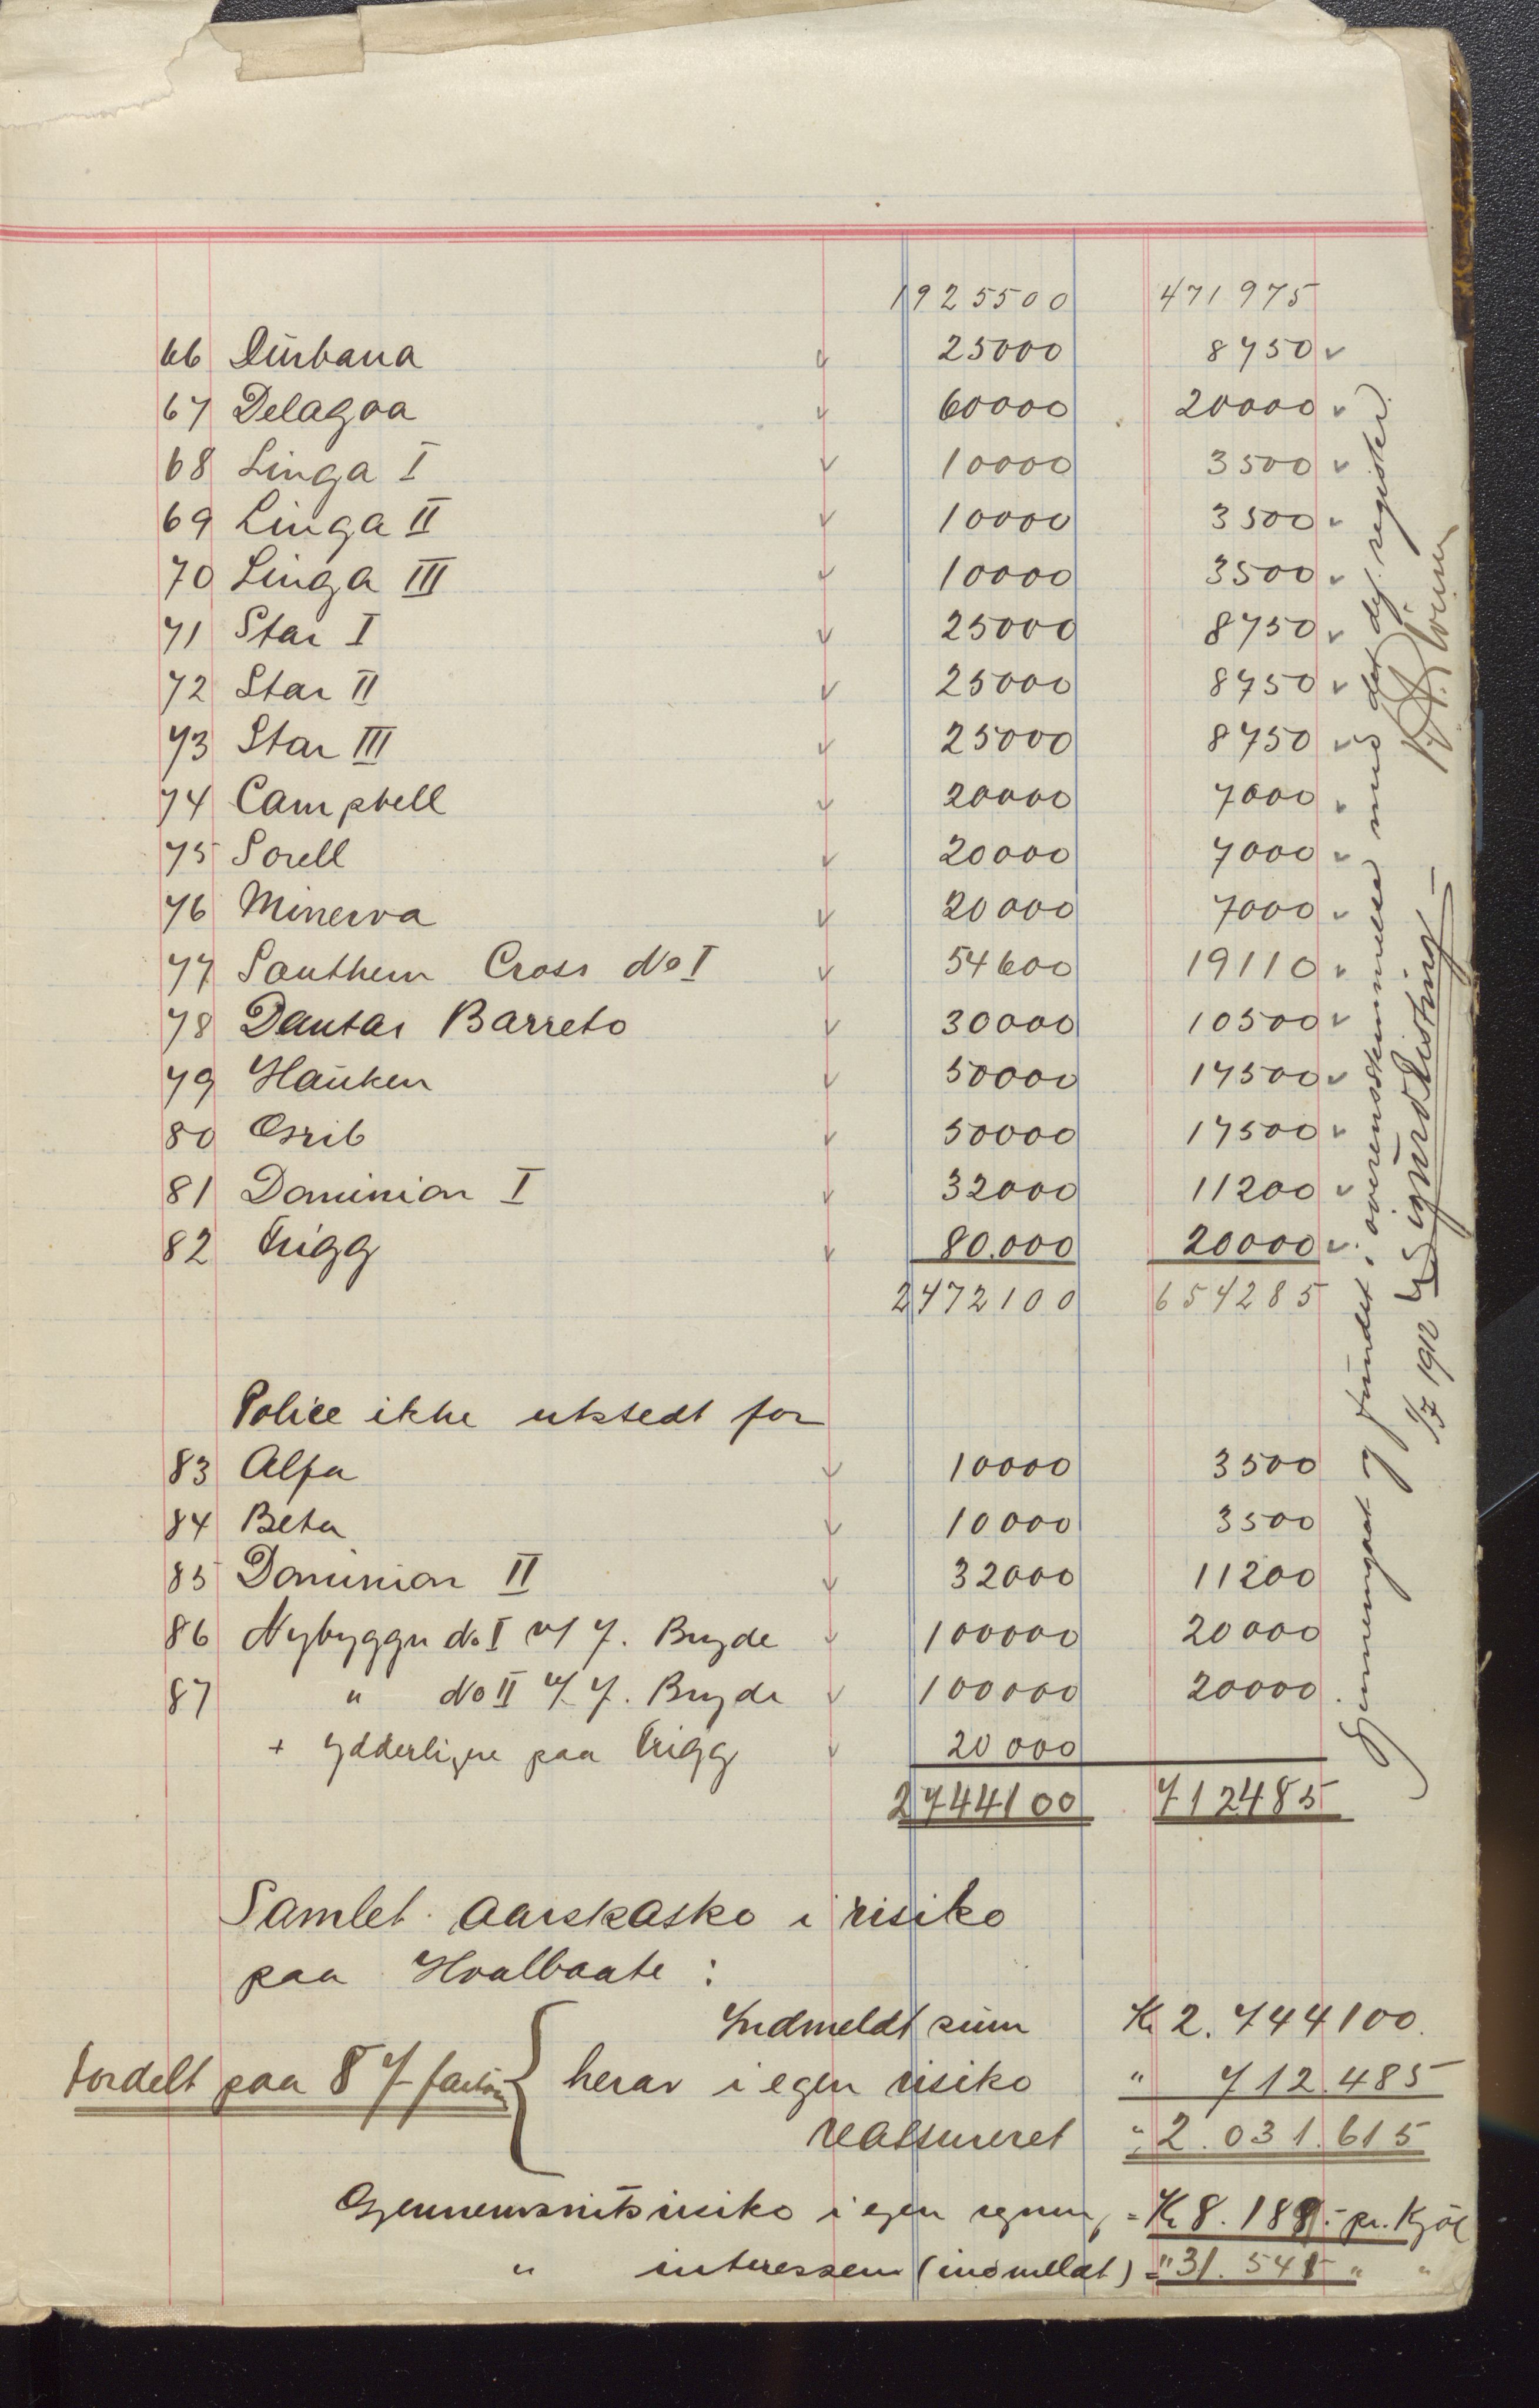 1925500 471975
66 Durbana 25000 8750
67 Delagoa 60000 20000
68 Linga I 10000 3500
69 Linga II 10000 3500
70 Linga III 10000 3500
71 Star I 25000 8750
72 Star II 25000 8750
73 Star III 25000 8750
74 Campbell 20000 7000
75 Sorell 20000 7000
76 Minerva 20000 7000
77 Southern Cross No I 54600 19110
78 Dantas Barreto 30000 10500
79 Hauken 50000 17500
80 Osrib 50000 17500
81 Dominion I 32000 11200
82 Trigg 80.000 20000
2472100 654285
Police ikke utstedt for
83 Alfa 10000 3500
84 Beta 10000 3500
85 Dominion II 32000 11200
86 Nybygge No I v/ J. Bryde 100000 20000
87 " No II v/ J. Bryde 100000 20000
+ ydderligere paa Trigg 20000
2744100 712485
Samlet aarskasko i risiko
paa Hvalbaate :
Indmeldt sum Kr 2.744100.
fordelt paa 87 { herav i egen risiko " 712.485
reassureret " 2.031.615
Gjennemsnitsrisiko i egen regning = Kr 8.189.- pr. Kjøl
" interessen (indmeldt) = " 31.541 " "
Gjennemgaat og fundet i overensstemmelse med det def. register.
1/7 1912 Sigurd Risting